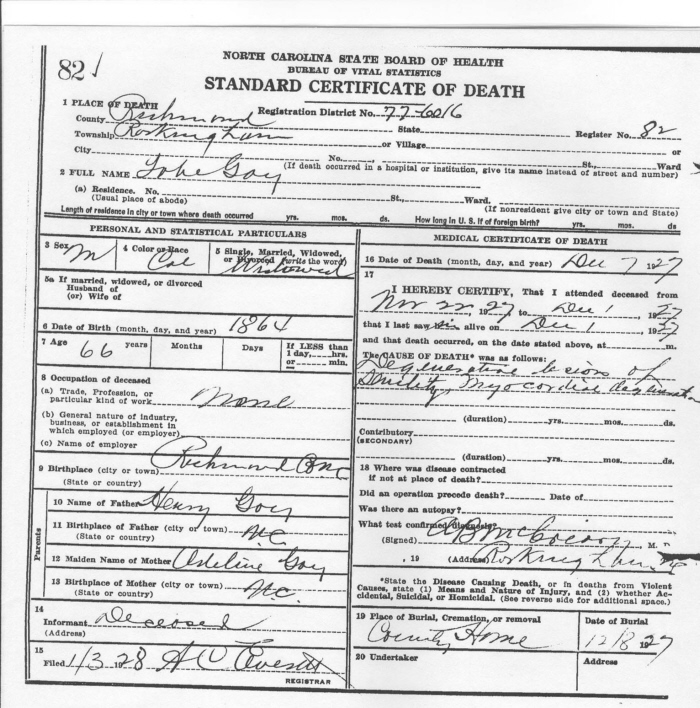 82
NORTH CAROLINA STATE BOARD OF HEALTH
BUREAU OF VITAL STATISTICS
STANDARD CERTIFICATE OF DEATH
1 PLACE OF DEATH
County Richmond Registration District No. 77-6016 State Register No. 82
Township Rockingham or Village or
City No. St., Ward
(If death occurred in a hospital or institution, give its name instead of street and number)
2 FULL NAME
(a) Residence. No. St., Ward.
(Usual place of abode) (If nonresident give city or town and State)
Length of residence in city or town where death occurred yrs. mos. ds. How long in U. S. if of foreign birth? yrs. mos. ds
PERSONAL AND STATISTICAL PARTICULARS
3 Sex M 4 Color or Race Col 5 Single, Married, Widowed, or Divorced (write the word) Widowed
5a If married, widowed, or divorced
Husband of
(or) Wife of
6 Date of Birth (month, day, and year) 1864
7 Age 66 years Months Days If LESS than 1 day, hrs. or min.
8 Occupation of deceased
(a) Trade, Profession, or particular kind of work None
(b) General nature of industry, business, or establishment in which employed (or employer)
(c) Name of employer
9 Birthplace (city or town) Richmond Co NC
(State or country)
Parents
10 Name of Father Henry
11 Birthplace of Father (city or town)
(State or country) NC
12 Maiden Name of Mother Adeline
13 Birthplace of Mother (city or town)
(State or country) NC.
14
Informant Deceased
(Address)
15
Filed 1/3 1928 A C Everett
REGISTRAR
MEDICAL CERTIFICATE OF DEATH
16 Date of Death (month, day, and year) Dec 7 1927
17
I HEREBY CERTIFY, That I attended deceased from
Nov 22 27, 19 to Dec 1, 1927
that I last saw him alive on Dec 1, 1927
and that death occurred, on the date stated above, at m.
The CAUSE OF DEATH* was as follows:
Degenerative lesions of
Senility, Myocardial degeneration
(duration) yrs. mos. ds.
Contributory
(SECONDARY)
(duration) yrs. mos. ds.
18 Where was disease contracted
if not at place of death?
Did an operation precede death? Date of
Was there an autopsy?
What test confirmed diagnosis?
(Signed) M.
, 19 (Address) Rockingham, NC
*State the Disease Causing Death, or in deaths from Violent
Causes, state (1) Means and Nature of Injury, and (2) whether Ac-
cidental, Suicidal, or Homicidal. (See reverse side for additional space.)
19 Place of Burial, Cremation, or removal Date of Burial
County Home 12/8 1927
20 Undertaker Address